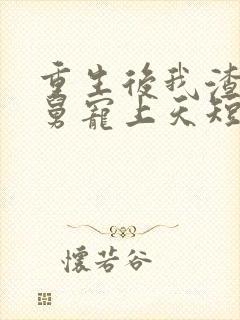 重生後我渣
舅寵上天短
懷若谷